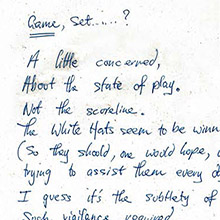 Game, Set......?
A little concerned,
About the state of play.
Not the scoreline.
The White Hats seem to be winn
(So they should, one would hope,
trying to assist them every d
I guess it's the subtlety of
Such vigilance required